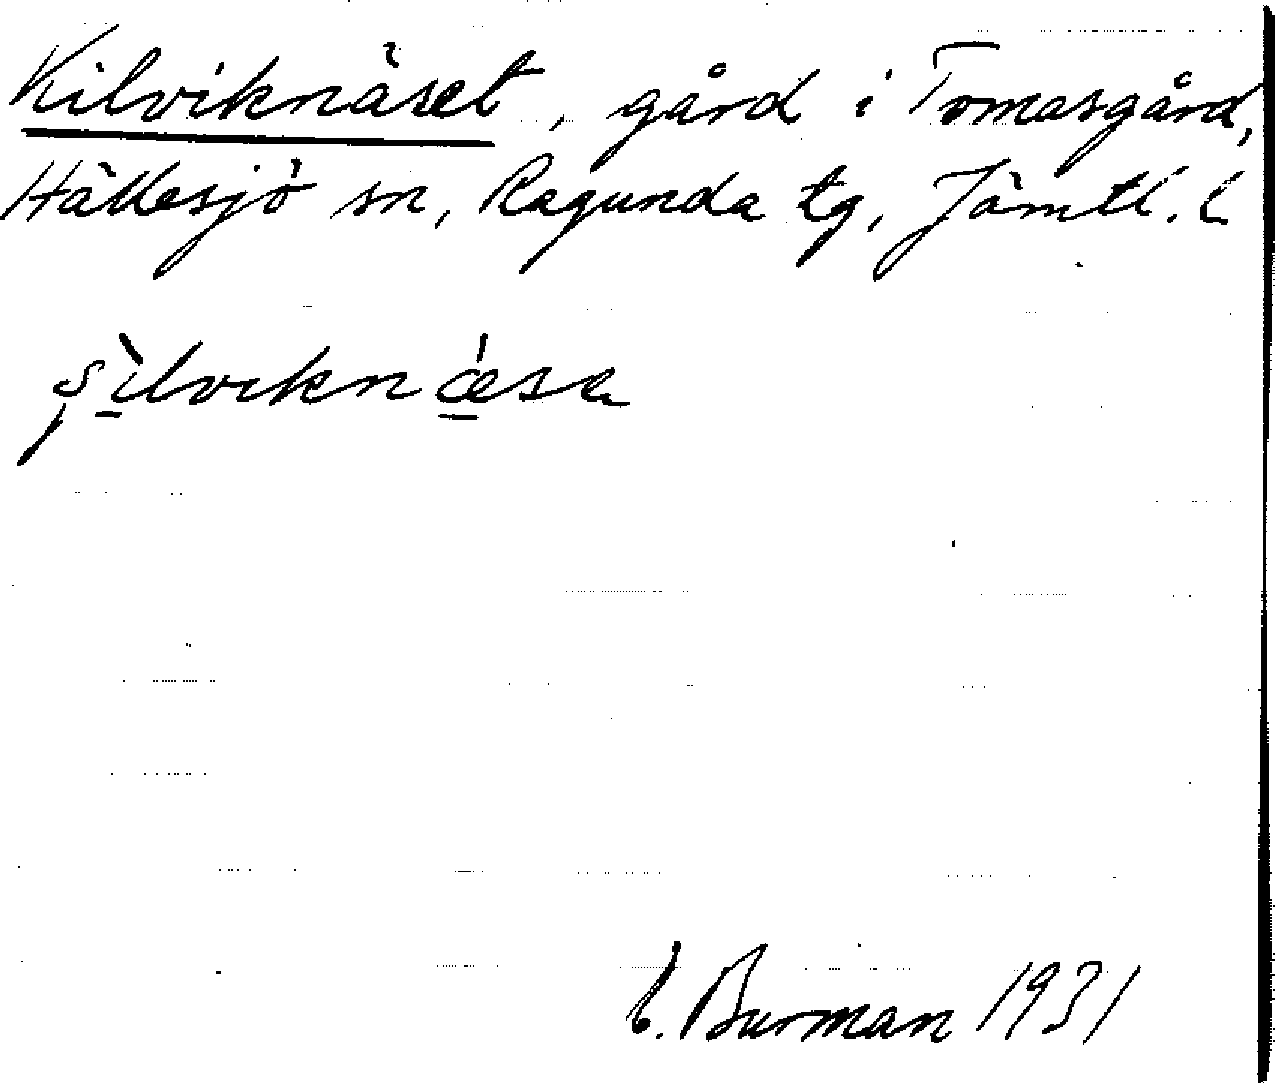 Kilviknäset, gård i Tomasgård,
Hällesjö sn, Ragunda tg, Jämtl. l
ʂìlviknǽsa
C. Burman 1931